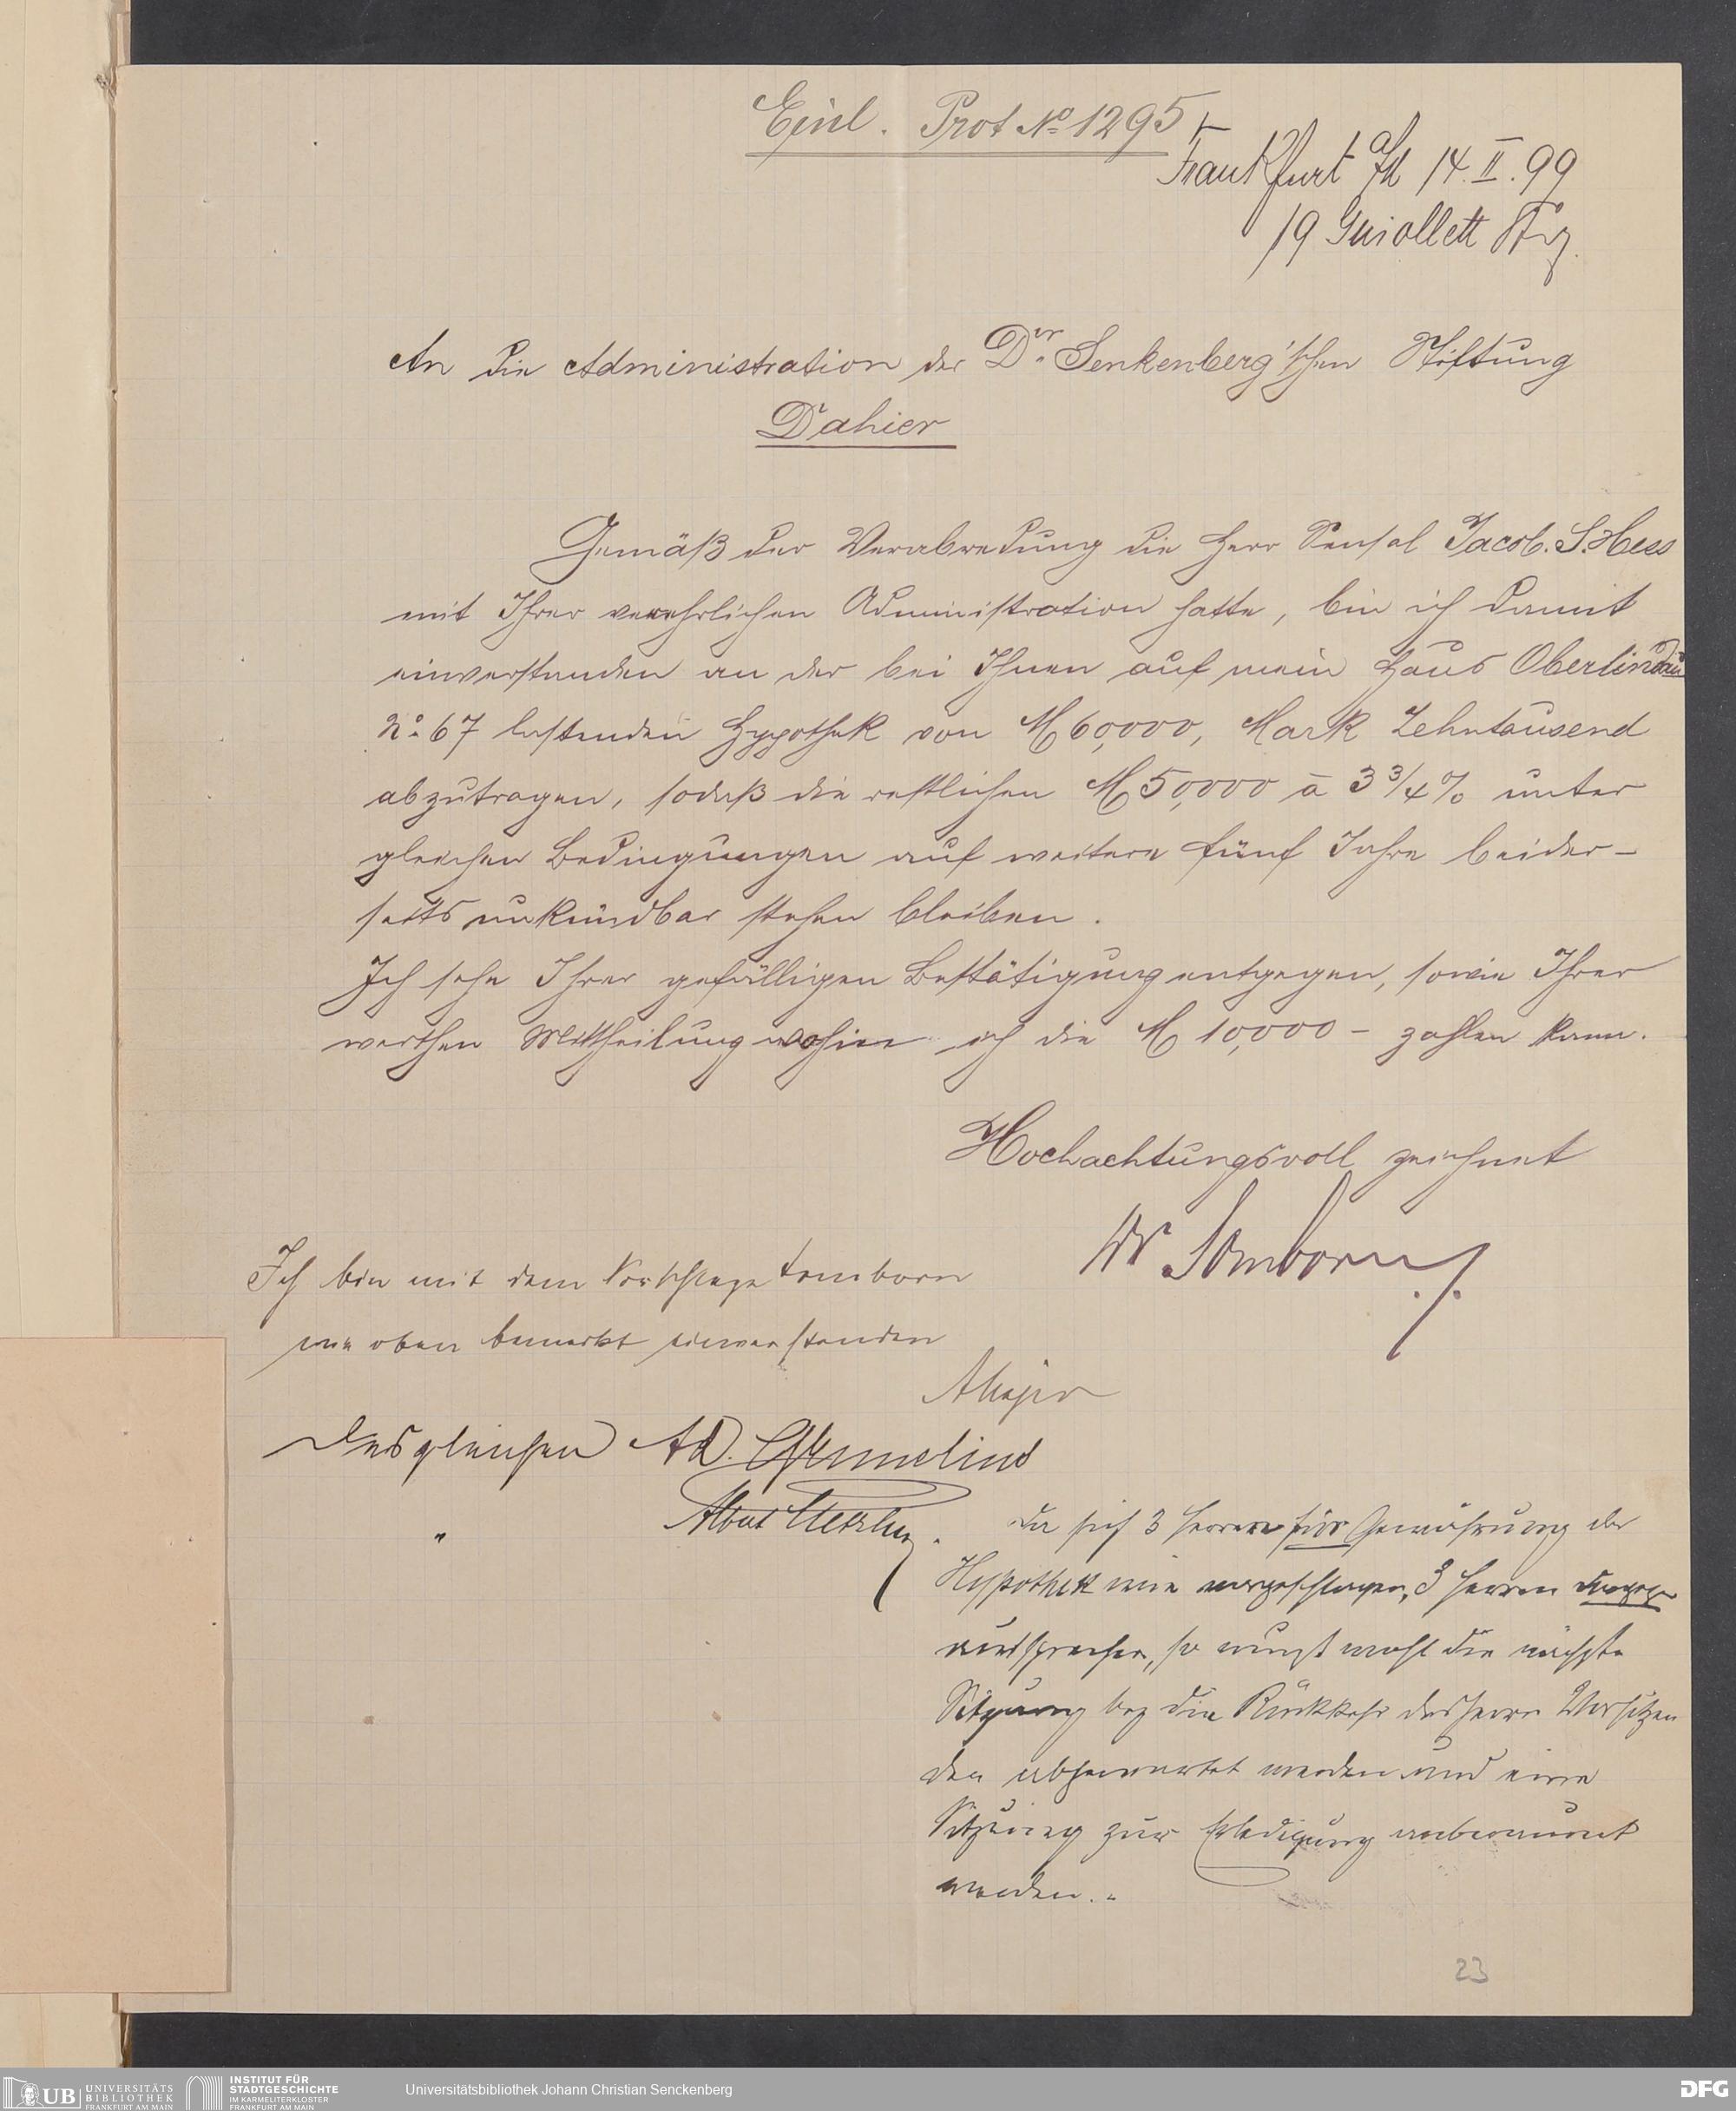 Einl. Prot No 1295
Frankfurt a/M 14. II. 99
19 Guiollett Str.
An die Administration der Dr. Senkenberg'schen Stiftung
Dahier
Gemäß der Verabredung die Herr Sensal Jacob. S. Hess
mit Ihrer verehrlichen Administration hatte, bin ich damit
einverstanden an der bei Ihnen auf mein Haus Oberlindau
No 67 lastenden Hypothek von M 60,000, Mark Zehntausend
abzutragen, sodaß die restlichen M 50,000 à 3 3/4 % unter
gleichen Bedingungen auf weitere fünf Jahre beider-
seits unkündbar stehen bleiben.
Ich sehe Ihrer gefälligen Bestätigung entgegen, sowie Ihrer
werthen Mittheilung wohin ich die M 10,000 - zahlen kann.
Hochachtungsvoll zeichnet
Dr Somborn
Ich bin mit dem Vorschlage Somborn
wie oben bemerkt einverstanden
Desgleichen Ad. Gmelin
" Albert Metzler.
Da sich 3 Herren für Gewährung der
Hypothek wie vorgeschlagen, 3 Herren dagegen
aussprechen, so muss wohl die nächste
Sitzung bez die Rückkehr des Herrn Vorsitzen
den abgewartet werden und eine
Sitzung zur Erledigung anberaumt
werden.
23
UB UNIVERSITÄTS
BIBLIOTHEK
FRANKFURT AM MAIN
INSTITUT FÜR
STADTGESCHICHTE
IM KARMELITERKLOSTER
FRANKFURT AM MAIN
Universitätsbibliothek Johann Christian Senckenberg
DFG